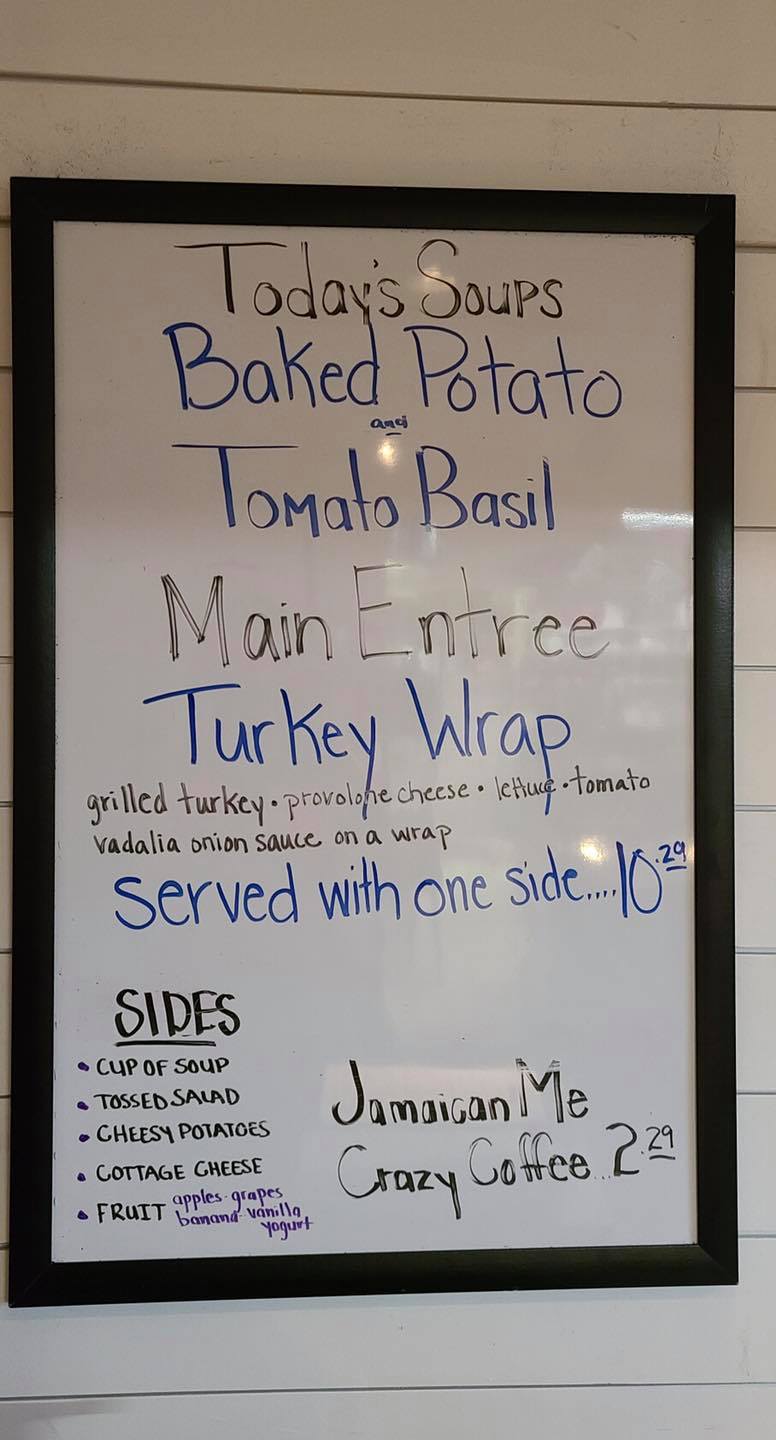 Today's Soups
Baked Potato
and
Tomato Basil
Main Entree
Turkey Wrap
grilled turkey • provolone cheese • lettuce • tomato
vadalia onion sauce on a wrap
served with one side....10.29
SIDES
• CUP OF SOUP
• TOSSED SALAD
• CHEESY POTATOES
• COTTAGE CHEESE
• FRUIT apples - grapes
banana - vanilla
yogurt
Jamaican Me
Crazy Coffee...2.29